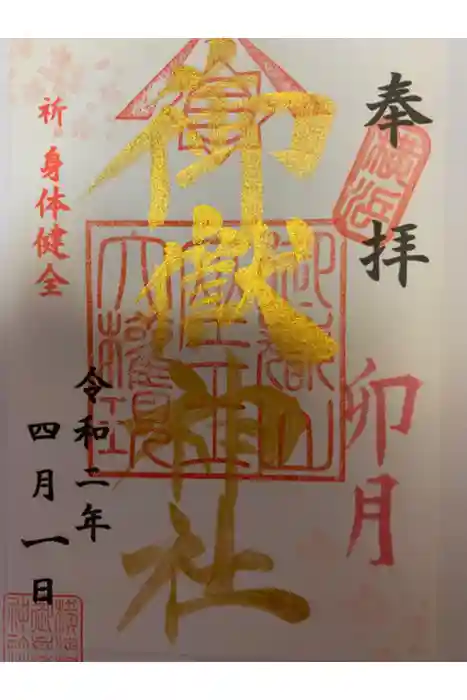 奉拝
横浜
卯月
御嶽神社
祈 身体健全
令和二年
四月一日